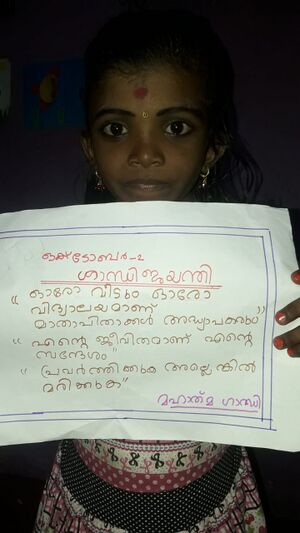 ഒക്ടോബർ-2
ഗാന്ധിജയന്തി
“ ഓരോ വീടും ഓരോ
വിദ്യാലയമാണ്
മാതാപിതാക്കൾ അദ്ധ്യാപകരും”
“ എന്റെ ജീവിതമാണ് എന്റെ
സന്ദേശം”
“ പ്രവർത്തിക്കുക അല്ലെങ്കിൽ
മരിക്കുക”
മഹാത്മ ഗാന്ധി